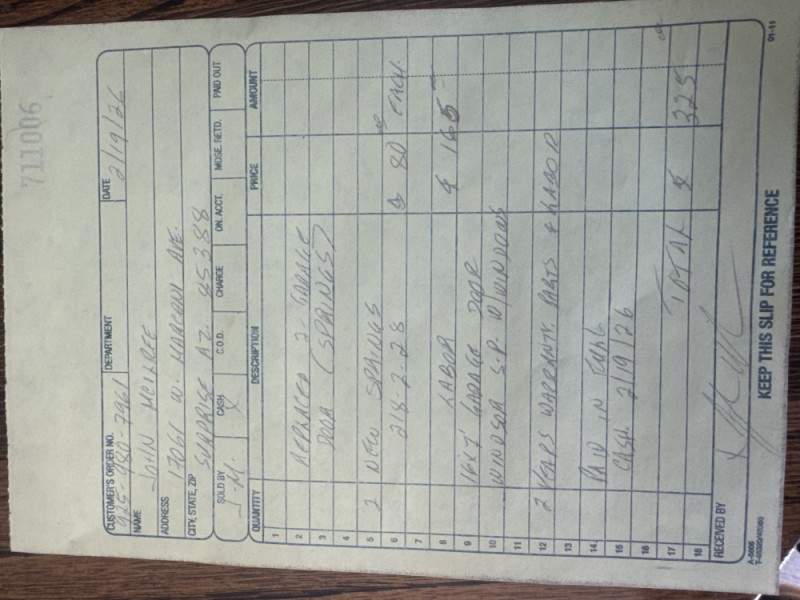 711006
CUSTOMER'S ORDER NO. DEPARTMENT DATE
925-980-7961 2/19/26
NAME
JOHN MCINTEE
ADDRESS
17061 W. MARCONI AVE.
CITY, STATE, ZIP
SURPRISE AZ. 85388
SOLD BY CASH C.O.D. CHARGE ON. ACCT. MDSE. RETD. PAID OUT
J.M. X
QUANTITY DESCRIPTION PRICE AMOUNT
1
2 REPLACED 2- GARAGE
3 DOOR (SPRINGS)
4
5 2 NEW SPRINGS
6 218-2-28 $ 80 EACH.
7
8 LABOR $ 165
9 16X7 GARAGE DOOR
10 WINDSOR S.P. W/WINDOWS
11
12 2 YEARS WARRANTY. PARTS & LABOR
13
14 PAID IN FULL
15 CASH. 2/19/26
16
17 TOTAL $ 325
18
RECEIVED BY
A-5805
T-46320/46350
KEEP THIS SLIP FOR REFERENCE
01-11